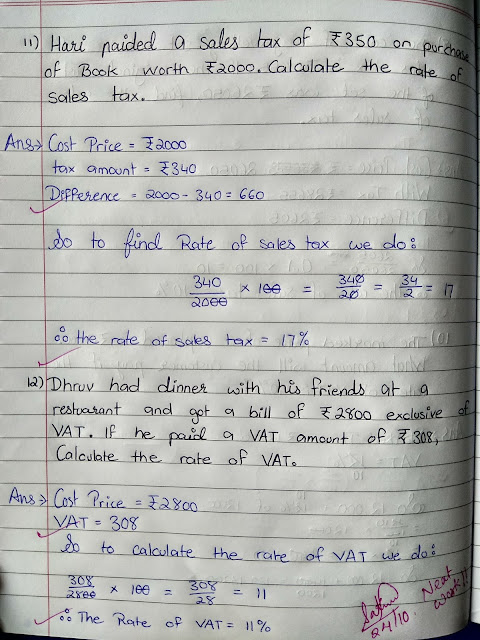 11) Hari paided a sales tax of ₹350 on purchase
of Book worth ₹2000. Calculate the rate of
sales tax.
Ans→ Cost Price = ₹2000
tax amount = ₹340
Difference = 2000 - 340 = 660
So to find Rate of sales tax we do:
340/2000 × 100 = 340/20 = 34/2 = 17
∴ the rate of sales tax = 17%
12) Dhruv had dinner with his friends at a
restuarant and got a bill of ₹2800 exclusive of
VAT. If he paid a VAT amount of ₹308,
Calculate the rate of VAT.
Ans→ Cost Price = ₹2800
VAT = 308
So to calculate the rate of VAT we do:
308/2800 × 100 = 308/28 = 11
∴ The Rate of VAT = 11%
24/10.
Neat
work!!